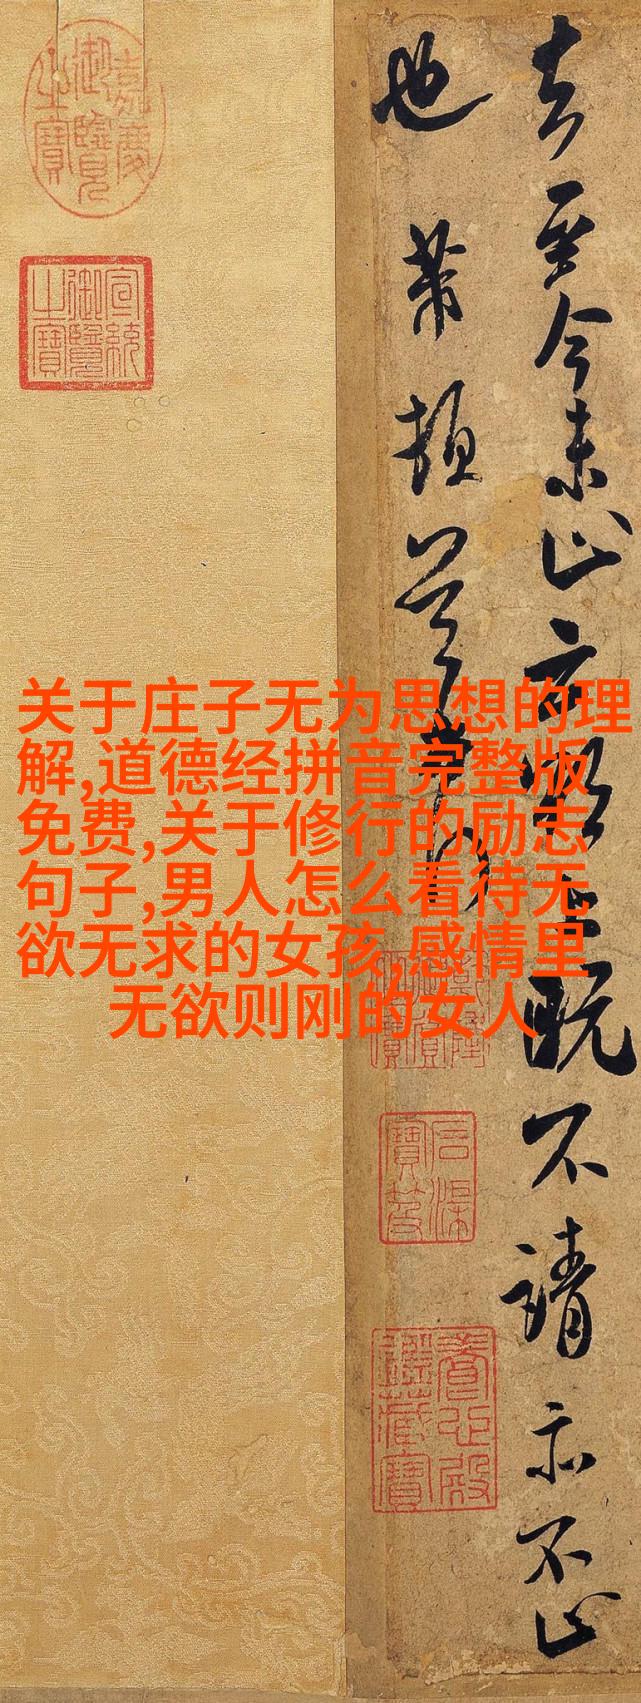 去至今未止亦
既不請亦不止
也芾頓首
嘉慶御覽之寶
宣統御覽之寶
关于庄子无为思想的理
解,道德经拼音完整版
免费,关于修行的励志
句子,男人怎么看待无
欲无求的女孩,感情里
无欲则刚的女人
石渠寶笈
養心殿鑑藏寶